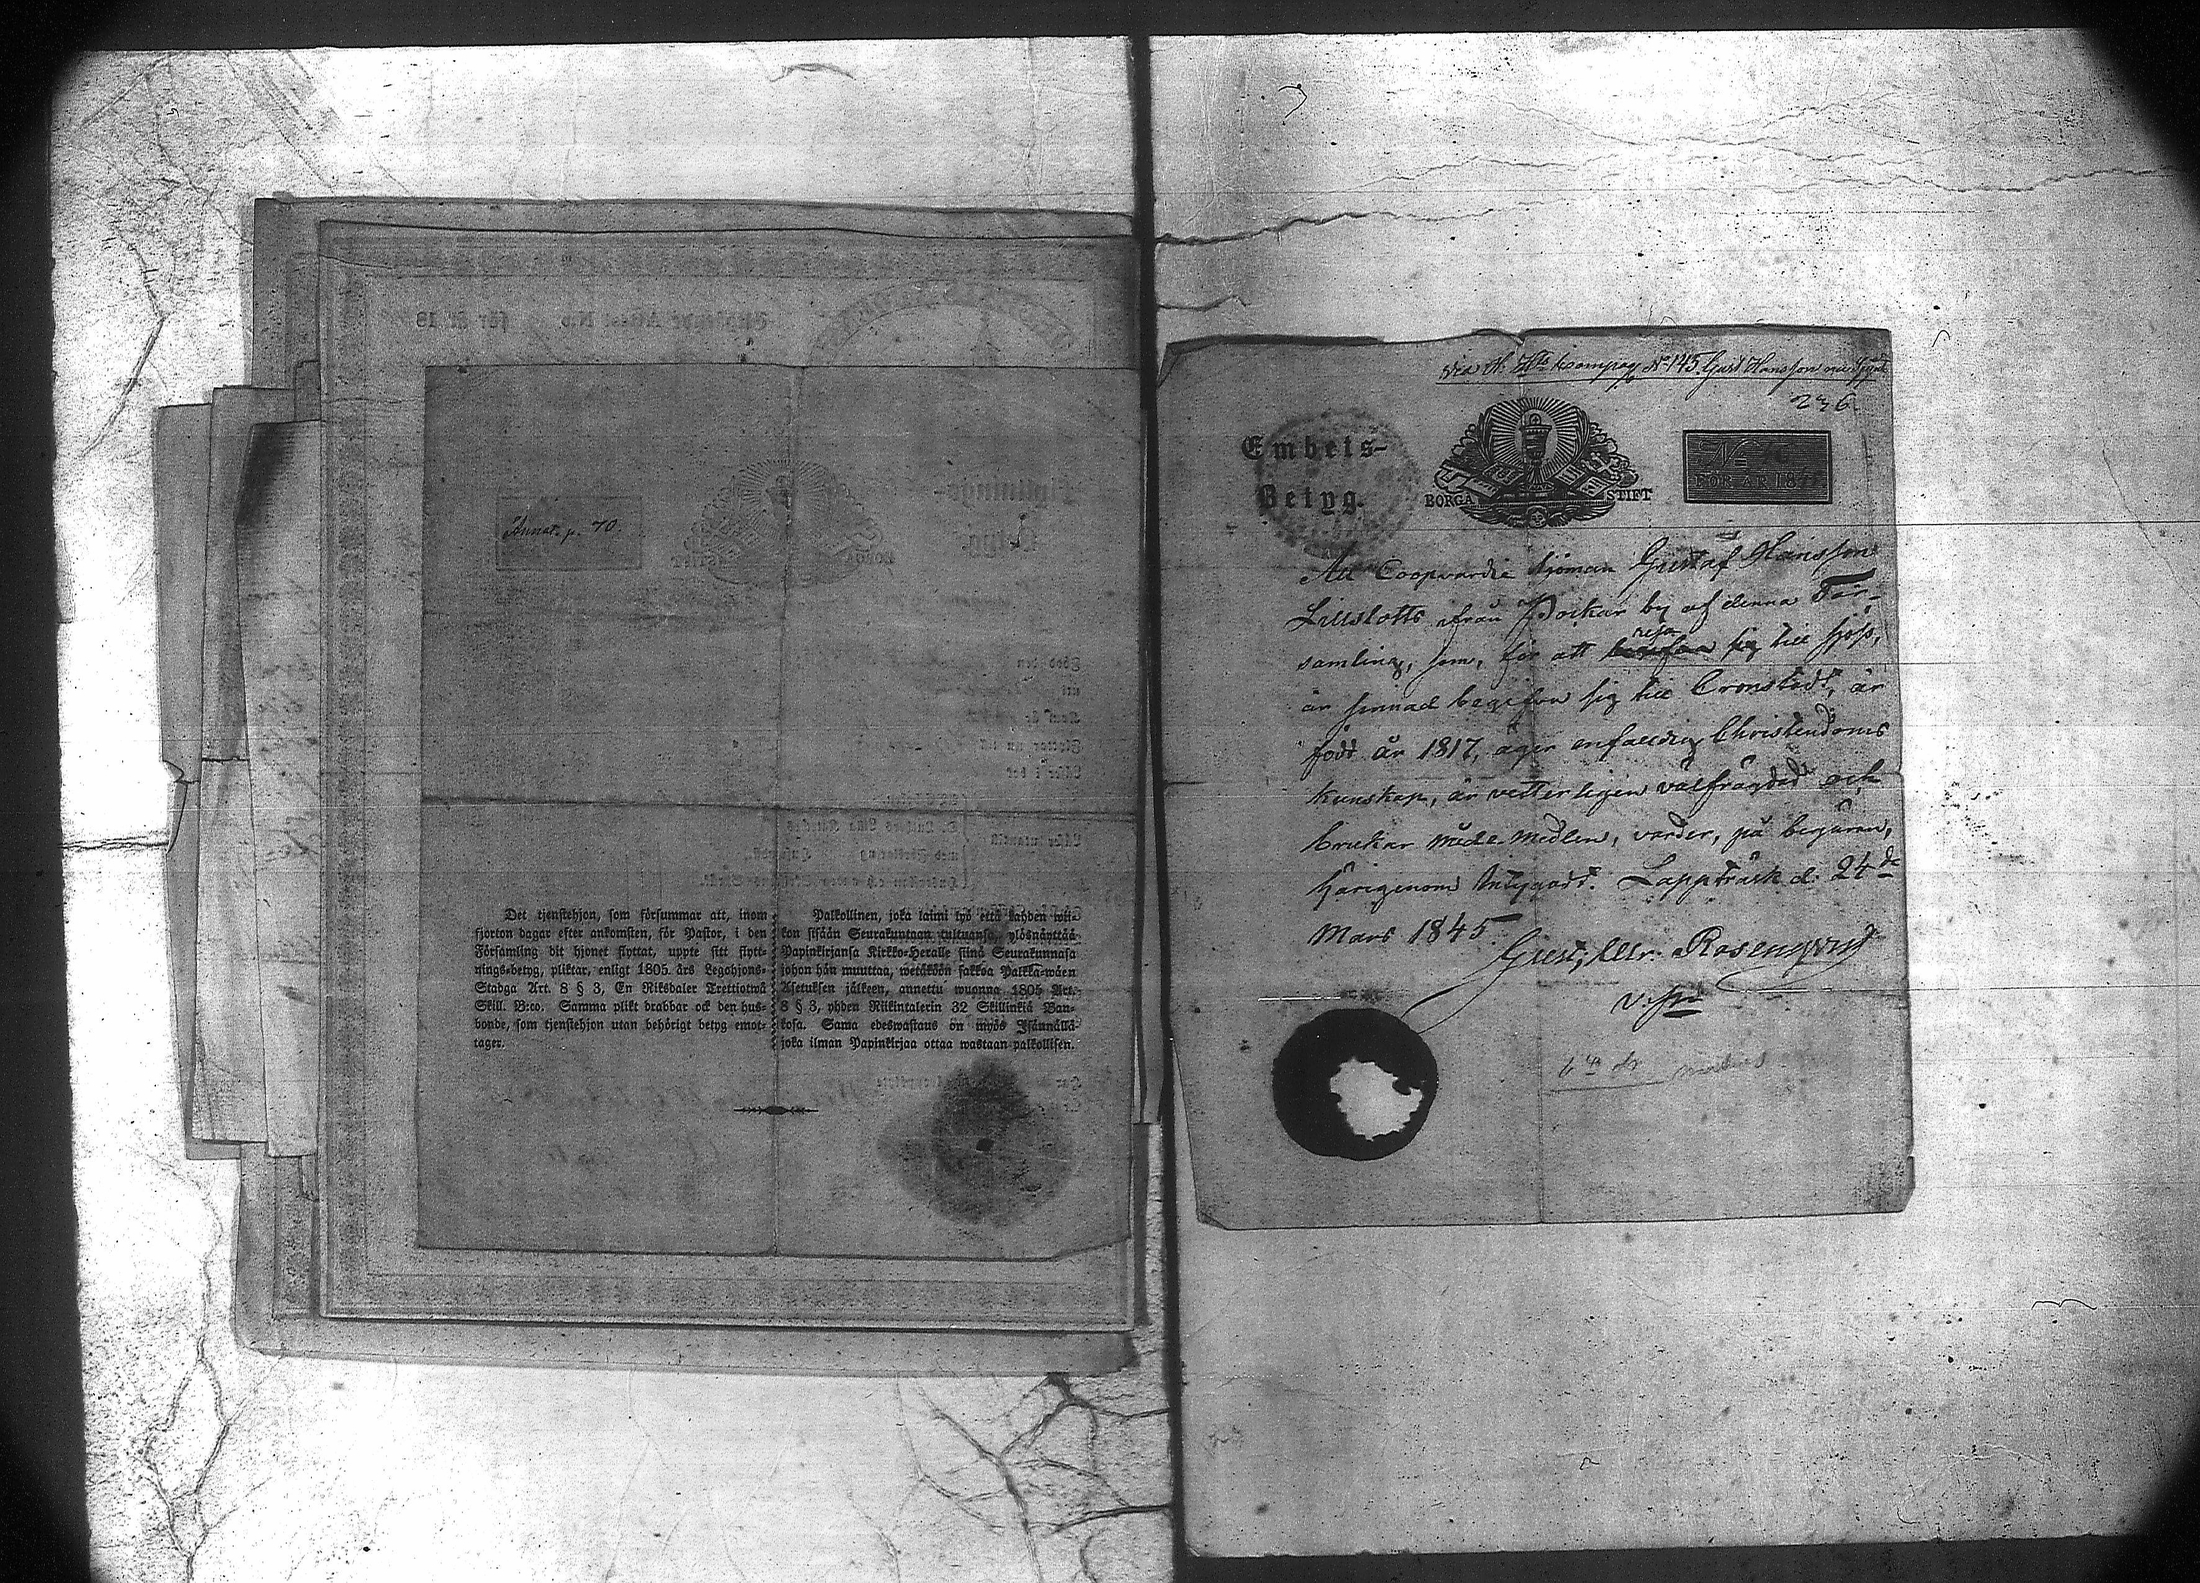 Annot. p. 70.
Det tjenstehjon, som försummar att, inom
fjorton dagar efter ankomsten, för Pastor, i den
Församling dit hjonet flyttat, uppte sitt flytt-
nings-betyg, pliktar, enligt 1805 års Legohjons-
Stadga Art. 8 § 3, En Riksdaler Trettiotwå
Skill. B:co. Samma plikt drabbar ock den hus-
bonde, som tjenstehjon utan behörigt betyg emot-
tager.
Palkollinen, joka laimi lyö että kahden wii-
kon sisään Seurakuntaan tultuansa, ylösnäyttää
Papinkirjansa Kirkko-Heralle siinä Seurakunnasa
johon hän muuttaa, wetäköön sakkoa Palkka-wäen
Asetuksen jälkeen, annettu wuonna 1805 Art.
8 § 3, yhden Riikintalerin 32 Skillinkiä Ban-
kosa. Sama edeswastaus on myös Isännällä
joka ilman Papinkirjaa ottaa wastaan palkollisen.
Kompag N° 145. Gust Hansson
236
Embets-
Betyg.
BORGA STIFT
N°
FÖR ÅR 18
Att Coopvardie Sjöman Gustaf Hansson
Lillslotts ifrån Porkar by af denna För-
samling, som, för att resa till sjöss,
är sinnad begifva sig till Cronstedt, är
född år 1817, äger enfaldig Christendoms
kunskap, är vetterligen välfrägdad och
brukar nådemedlen, varder, på begäran,
härigenom intygadt. Lappträsk d. 24de
Mars 1845.
Gust; Rosenqvist